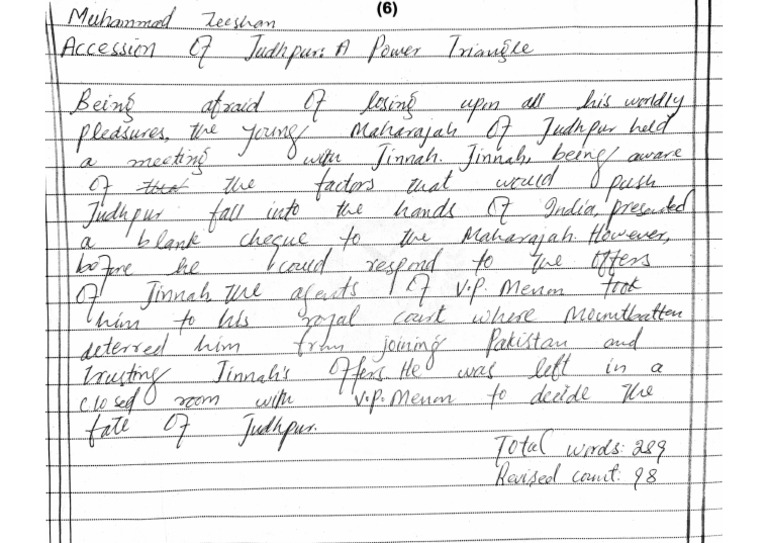 (6)
Muhammad Zeeshan
Accession Of Judhpur: A Power Triangle
Being afraid Of losing upon all his worldly
pleasures, the young Maharajah Of Judhpur held
a meeting with Jinnah. Jinnah, being aware
Of the factors that would push
Judhpur fall into the hands Of India, presented
a blank cheque to the Maharajah. However,
before he could respond to the Offers
Of Jinnah, the agents Of V.P. Menon took
him to his royal court where Mounitbatten
deterred him from joining Pakistan and
trusting Jinnah's Offers. He was left in a
closed room with V.P. Menon to decide the
fate Of Judhpur.
Total words: 289
Revised count: 98